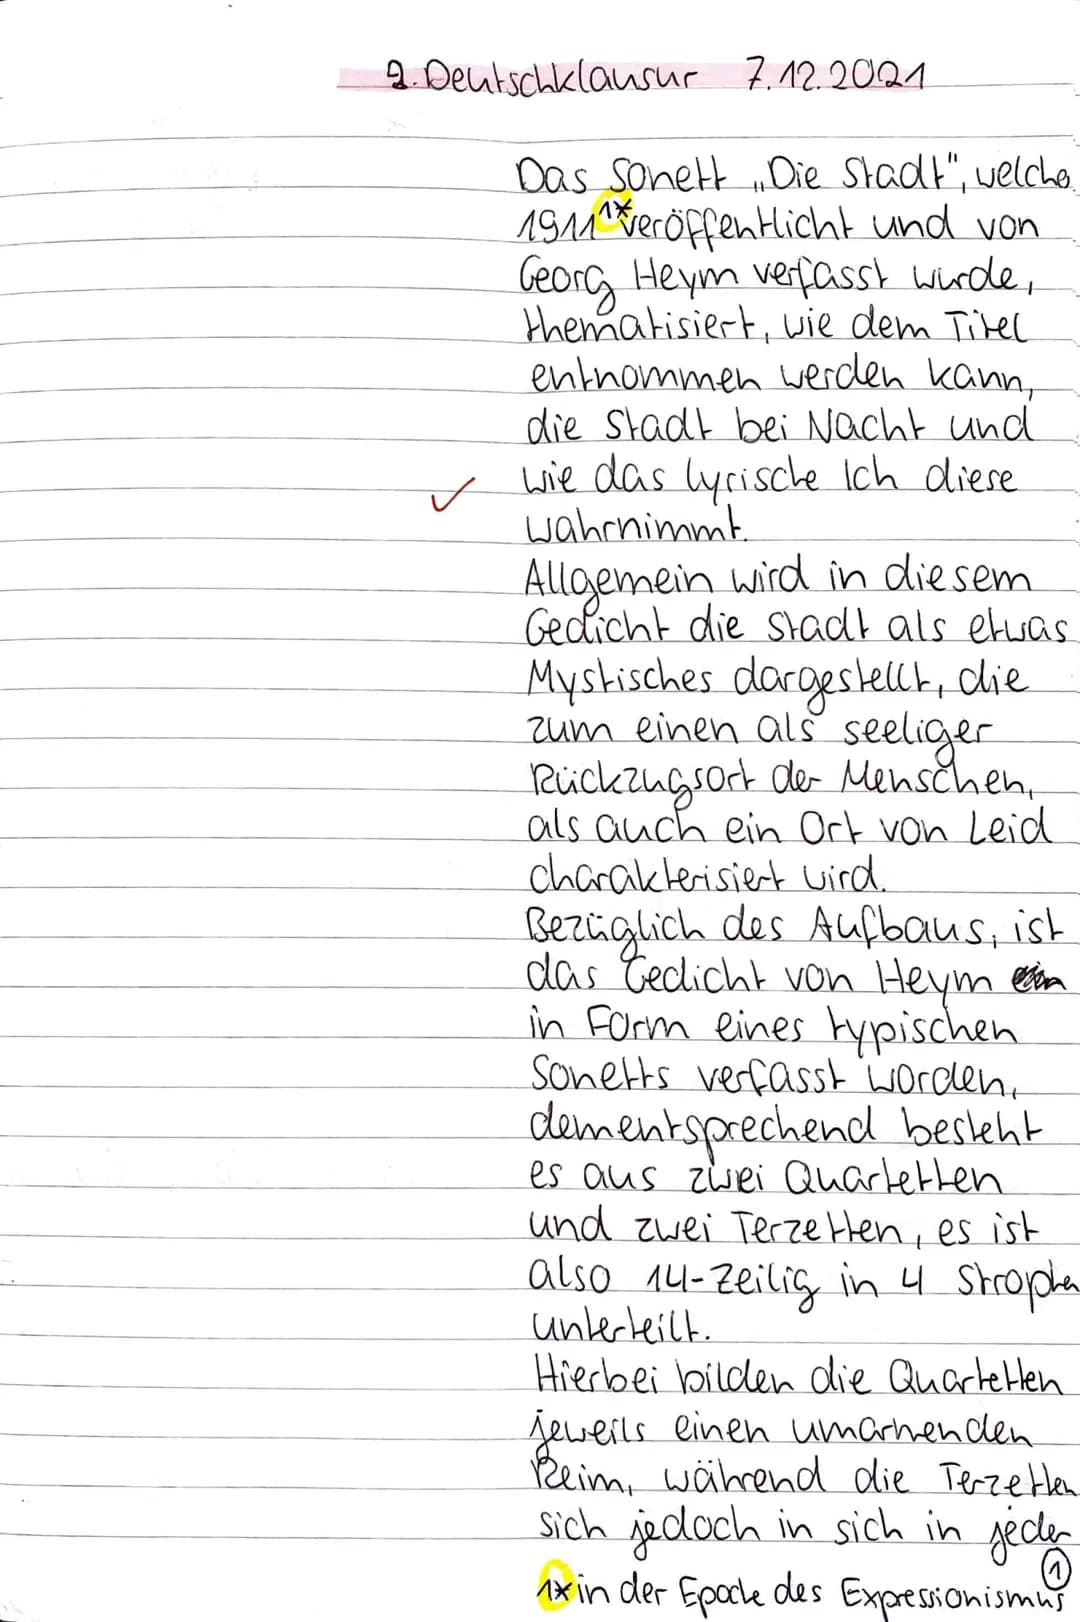 2. Deutschklausur 7.12.2021
Das Sonett „Die Stadt", welche
1911 1* veröffentlicht und von
Georg Heym verfasst wurde,
thematisiert, wie dem Titel
entnommen werden kann,
die Stadt bei Nacht und
wie das lyrische Ich diese
wahrnimmt.
Allgemein wird in diesem
Gedicht die Stadt als etwas
Mystisches dargestellt, die
zum einen als seeliger
Rückzugsort der Menschen,
als auch ein Ort von Leid
charakterisiert wird.
Bezüglich des Aufbaus, ist
das Gedicht von Heym
in Form eines typischen
Sonetts verfasst worden,
dementsprechend besteht
es aus zwei Quartetten
und zwei Terzetten, es ist
also 14-Zeilig in 4 Strophen
unterteilt.
Hierbei bilden die Quartetten
jeweils einen umarmenden
Reim, während die Terzetten
sich jedoch in sich in jeder
1
1* in der Epoche des Expressionismus